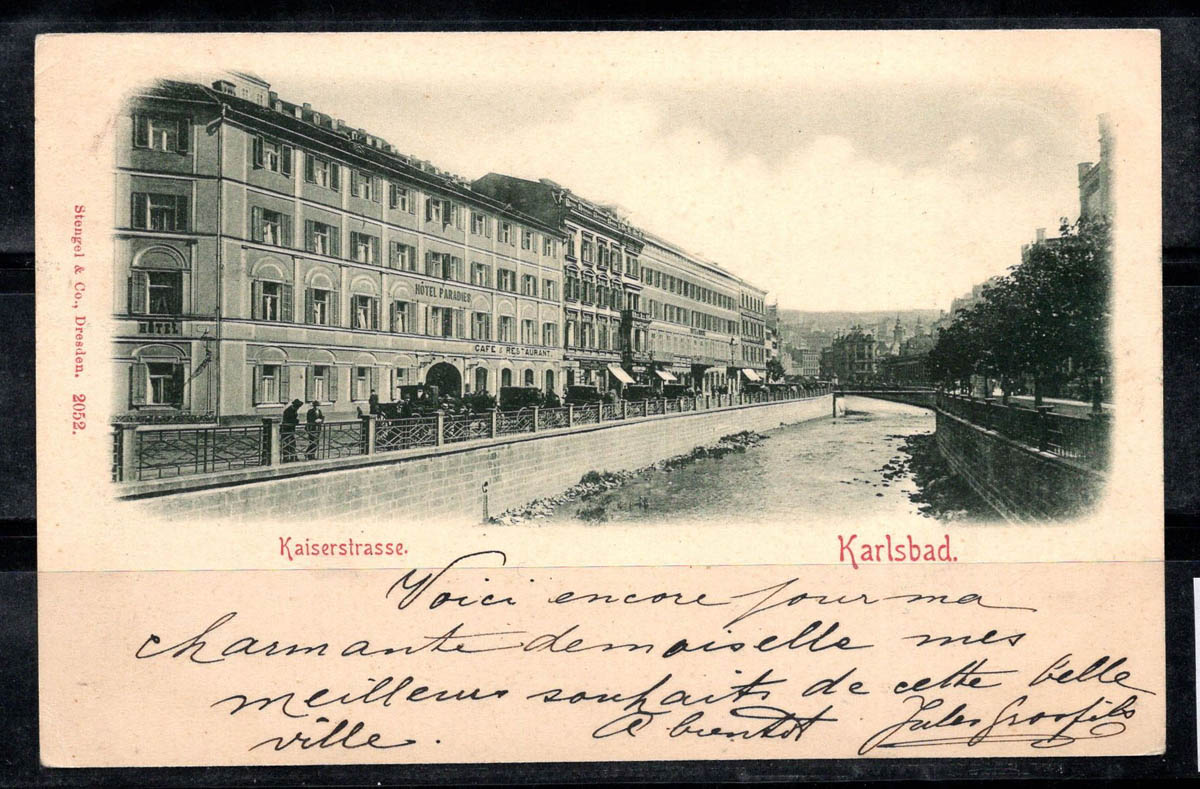 Stengel & Co., Dresden. 2052.
HÔTEL PARADIES
HÔTEL
CAFÉ & RESTAURANT.
Kaiserstrasse.
Karlsbad.
Voici encore pour ma
charmante demoiselle mes
meilleurs souhaits de cette belle
ville.
A bientôt
Jules Grosfils